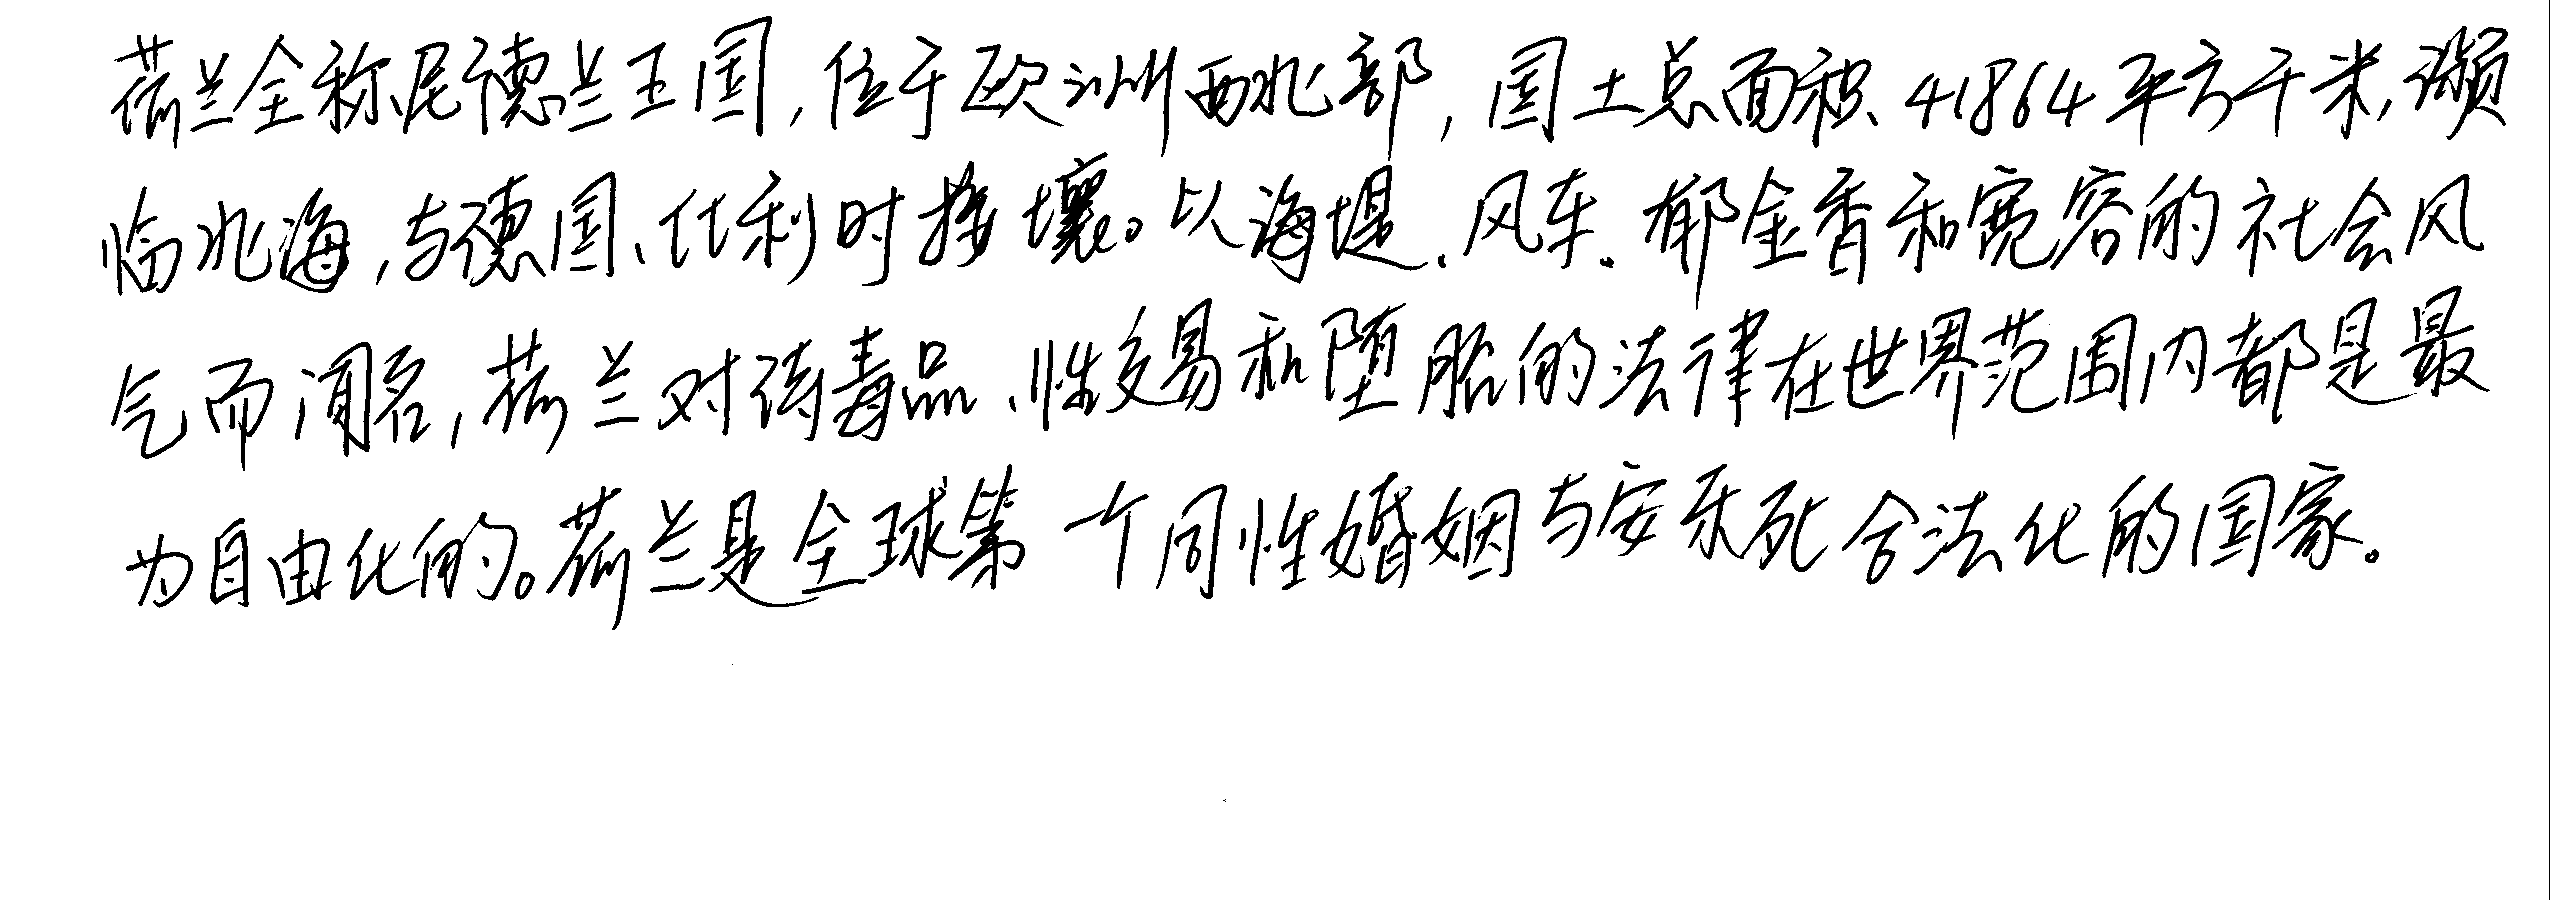 荷兰全称尼德兰王国,位于欧洲西北部,国土总面积41864平方千米,濒
临北海,与德国、比利时接壤。以海堤、风车、郁金香和宽容的社会风
气而闻名,荷兰对待毒品、性交易和堕胎的法律在世界范围内都是最
为自由化的。荷兰是全球第一个同性婚姻与安乐死合法化的国家。